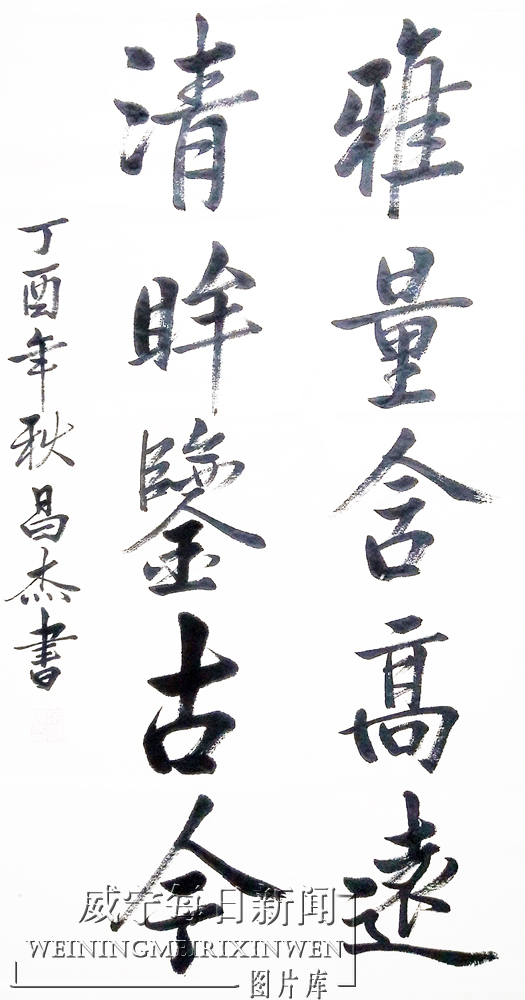 雅量含高遠
清眸鑒古今
丁酉年秋昌杰書
威宁每日新闻
WEININGMEIRIXINWEN
图片库